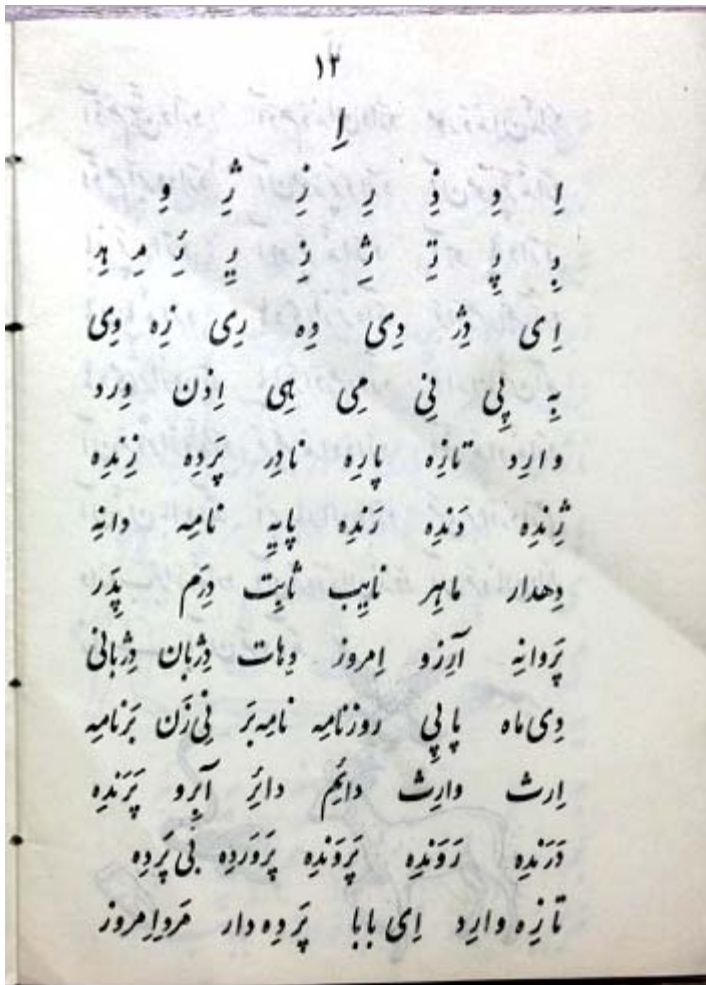 ۱۲
اِ
اِ دِ ذِ رِ زِ ژِ وِ
بِ پِ تِ ثِ نِ یِ ئِ مِ هِ
اِی دِژ دِی دِه رِی زِه وِی
بِه پِی نِی مِی هِی اِذن وِرد
وارِد تازِه پارِه نادِر پَردِه زِندِه
ژِندِه دَندِه رَندِه پایِه نامِه دانِه
دِهدار ماهِر نایِب ثابِت دِرَم پِدَر
پَروانِه آرِزو اِمروز دِهات دِژبان دِژبانی
دِی ماه پاپِی روزنامِه نامِه بَر نِی زَن بَرنامِه
اِرث وارِث دائِم دائِر آبِرو پَرَندِه
دَرَندِه رَوَندِه پَروَندِه پَروَردِه بی پَردِه
تازِه وارِد اِی بابا پَردِه دار مَرو اِمروز